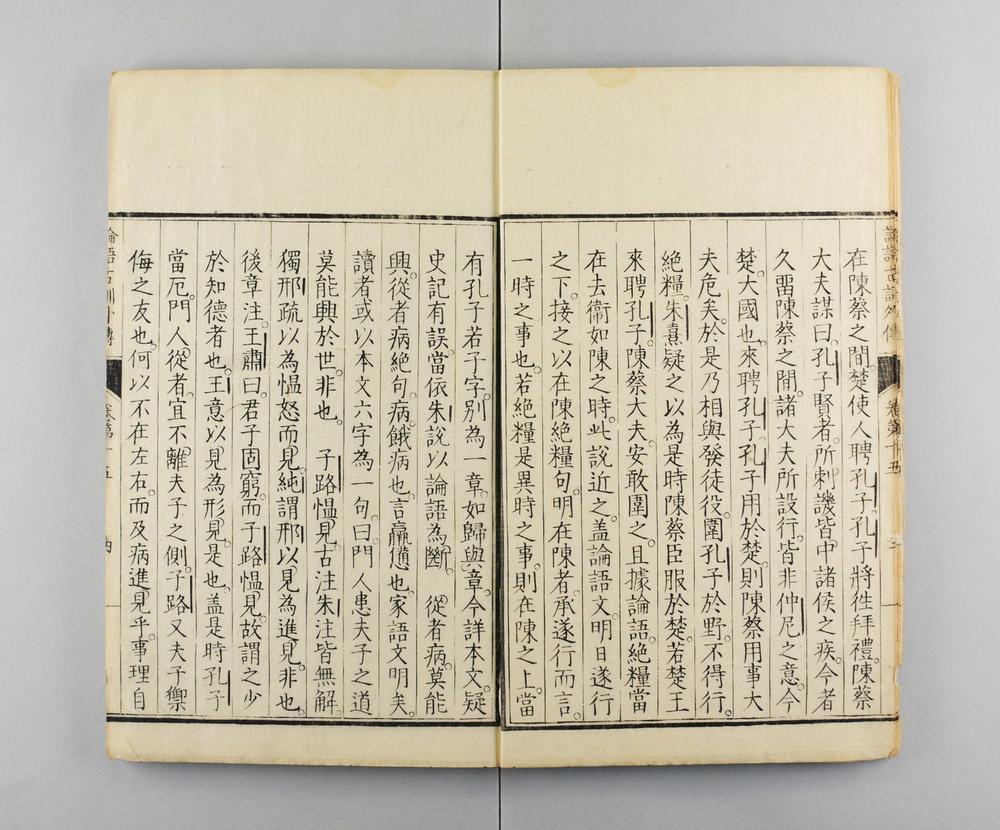 在陳蔡之閒。楚使人聘孔子。孔子將徃拜禮。陳蔡
大夫謀曰。孔子賢者。所刺譏皆中諸侯之疾。今者
久畱陳蔡之閒。諸大夫所設行。皆非仲尼之意。今
楚。大國也。來聘孔子。孔子用於楚。則陳蔡用事大
夫危矣。於是乃相與發徒役。圍孔子於野。不得行。
絶糧。朱熹疑之以為是時陳蔡臣服於楚。若楚王
來聘孔子。陳蔡大夫。安敢圍之。且據論語。絶糧當
在去衞如陳之時。此說近之。盖論語文。明日遂行
之下。接之以在陳絶糧句。明在陳者。承遂行而言。
一時之事也。若絶糧是異時之事。則在陳之上。當
有孔子若子字。別為一章。如歸與章。今詳本文。疑
史記有誤。當依朱說以論語為斷。 從者病。莫能
興。從者病絶句。病。餓病也。言羸憊也。家語文明矣。
讀者或以本文六字為一句。曰。門人患夫子之道
莫能興於世。非也。 子路慍見。古注朱注皆無解。
獨邢疏以為慍怒而見。純謂邢以見為進見。非也。
後章注。王肅曰。君子固窮。而子路慍見。故謂之少
於知德者也。王意以見為形見。是也。盖是時孔子
當厄。門人從者。宜不離夫子之側。子路又夫子禦
侮之友也。何以不在左右。而及病進見乎。事理自
論語古訓外傳
卷第十五
四